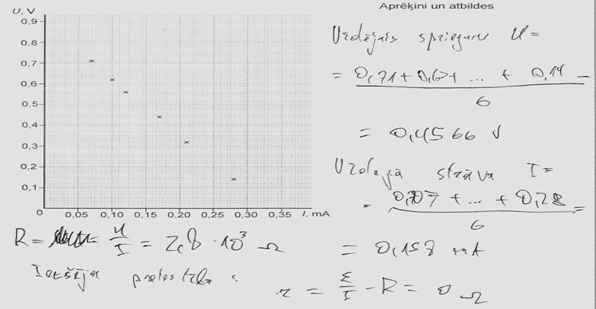 U, V
0,9
0,8
0,7
0,6
0,5
0,4
0,3
0,2
0,1
0 0,05 0,10 0,15 0,20 0,25 0,30 0,35 I, mA
Aprēķini un atbildes
Vidējais spriegums U =
= 0,71+0,6+ ... + 0,14
6
= 0,4566 V
Vidējā strāva I =
= 0,07 + ... + 0,28 =
6
= 0,158 mA
R = U/I = 2,8 · 10³ Ω
Iekšējā pretestība :
r = ε/I - R = 0 Ω